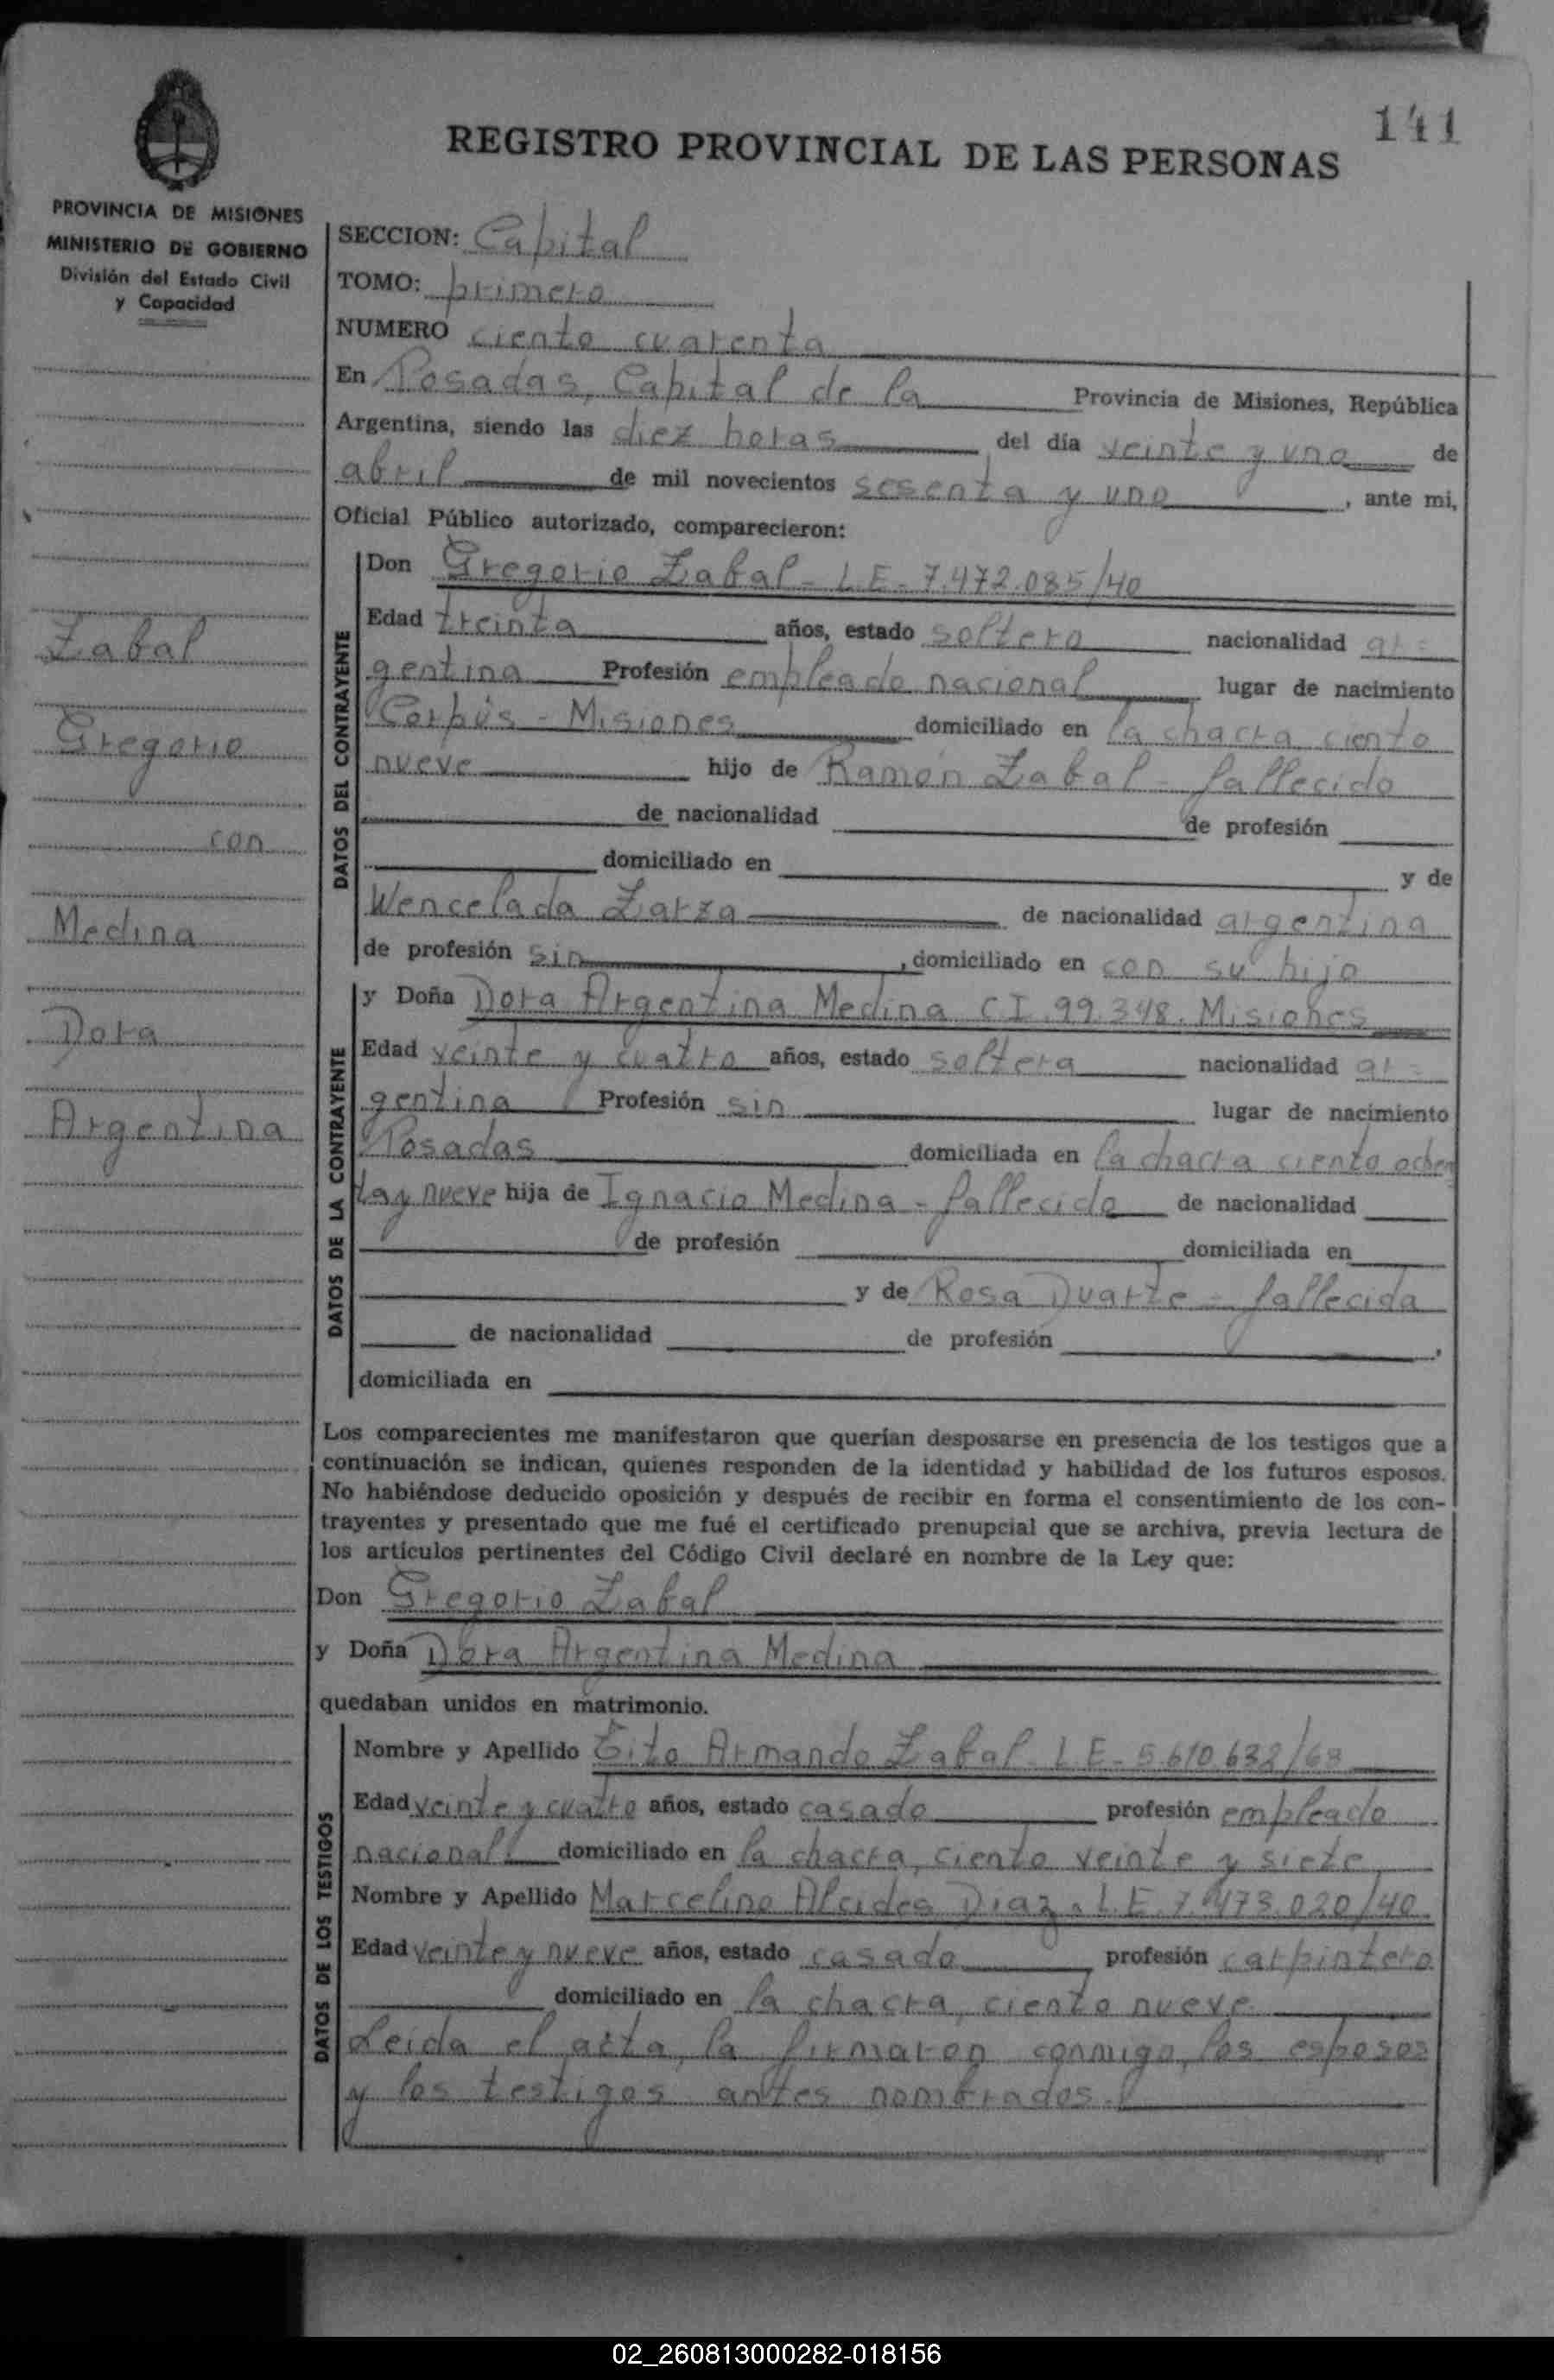 141
REGISTRO PROVINCIAL DE LAS PERSONAS
PROVINCIA DE MISIONES
MINISTERIO DE GOBIERNO
División del Estado Civil
y Capacidad
SECCION: Capital
TOMO: primero
NUMERO ciento cuarenta
En Posadas, Capital de la Provincia de Misiones, República
Argentina, siendo las diez horas del día veinte y uno de
abril de mil novecientos sesenta y uno, ante mi,
Oficial Público autorizado, comparecieron:
Zabal
Gregorio
con
Medina
Dora
Argentina
DATOS DEL CONTRAYENTE
Don Gregorio Zabal - L.E - 7.472.085/40
Edad treinta años, estado soltero nacionalidad ar=
gentina Profesión empleado nacional lugar de nacimiento
Corpus - Misiones domiciliado en la chacra ciento
nueve hijo de Ramón Zabal - fallecido
de nacionalidad de profesión
domiciliado en y de
Wencelada Zarza de nacionalidad argentina
de profesión sin, domiciliado en con su hijo
DATOS DE LA CONTRAYENTE
y Doña Dora Argentina Medina CI. 99.348. Misiones
Edad veinte y cuatro años, estado soltera nacionalidad ar=
gentina Profesión sin lugar de nacimiento
Posadas domiciliada en la chacra ciento ochen
ta y nueve hija de Ignacio Medina - fallecido de nacionalidad
de profesión domiciliada en
y de Rosa Duarte - fallecida
de nacionalidad de profesión ,
domiciliada en
Los comparecientes me manifestaron que querían desposarse en presencia de los testigos que a
continuación se indican, quienes responden de la identidad y habilidad de los futuros esposos.
No habiéndose deducido oposición y después de recibir en forma el consentimiento de los con-
trayentes y presentado que me fué el certificado prenupcial que se archiva, previa lectura de
los artículos pertinentes del Código Civil declaré en nombre de la Ley que:
Don Gregorio Zabal
y Doña Dora Argentina Medina
quedaban unidos en matrimonio.
DATOS DE LOS TESTIGOS
Nombre y Apellido Tito Armando Zabal - L.E - 5.610.632/68
Edad veinte y cuatro años, estado casado profesión empleado
nacional domiciliado en la chacra, ciento veinte y siete
Nombre y Apellido Marcelino Alcides Diaz. L.E. 7.473.020/40.
Edad veinte y nueve años, estado casado profesión carpintero
domiciliado en la chacra, ciento nueve
Leida el acta, la firmaron conmigo, los esposos
y los testigos antes nombrados.
02_260813000282-018156